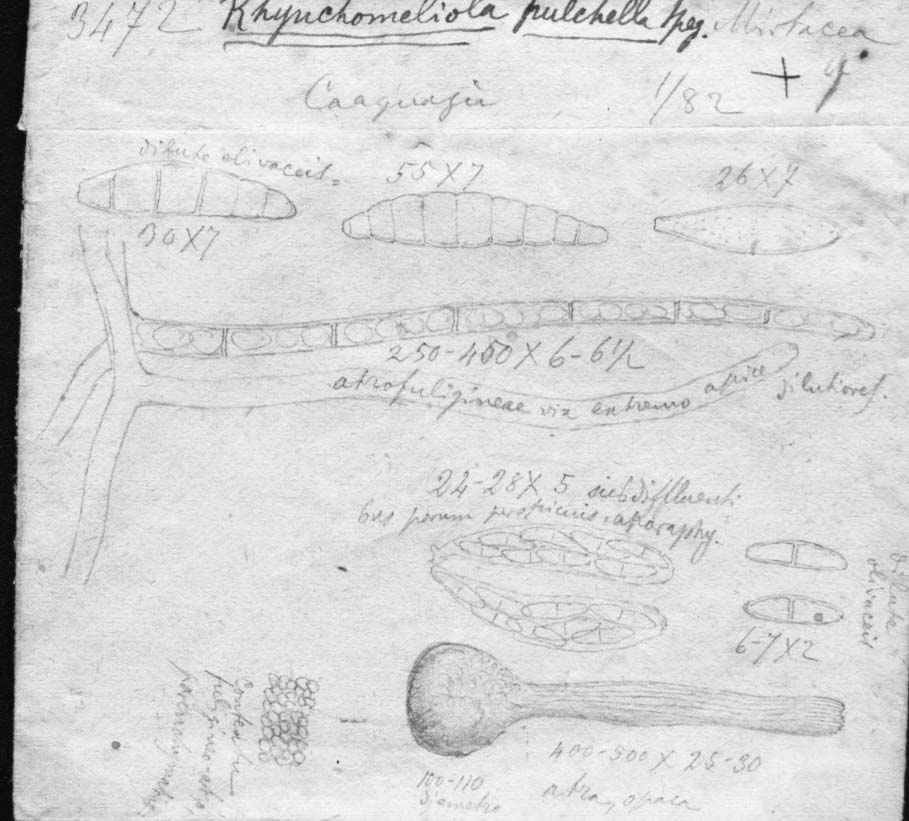 3472 Rhynchomeliola pulchella Speg.
Caaguazú 1/82 +
dilute olivaceis =
55X7
26X7
30X7
250-450 X 6-6½
atrofuligineae vix extremo apice dilutiores.
24-28X 5 subdiffluenti
bus parum perspicuis, aparaphy.
dilute
olivaceis
6-7X2
contextu
parenchymatico
400-500 X 25-30
100-110
diametro
atra, opaca